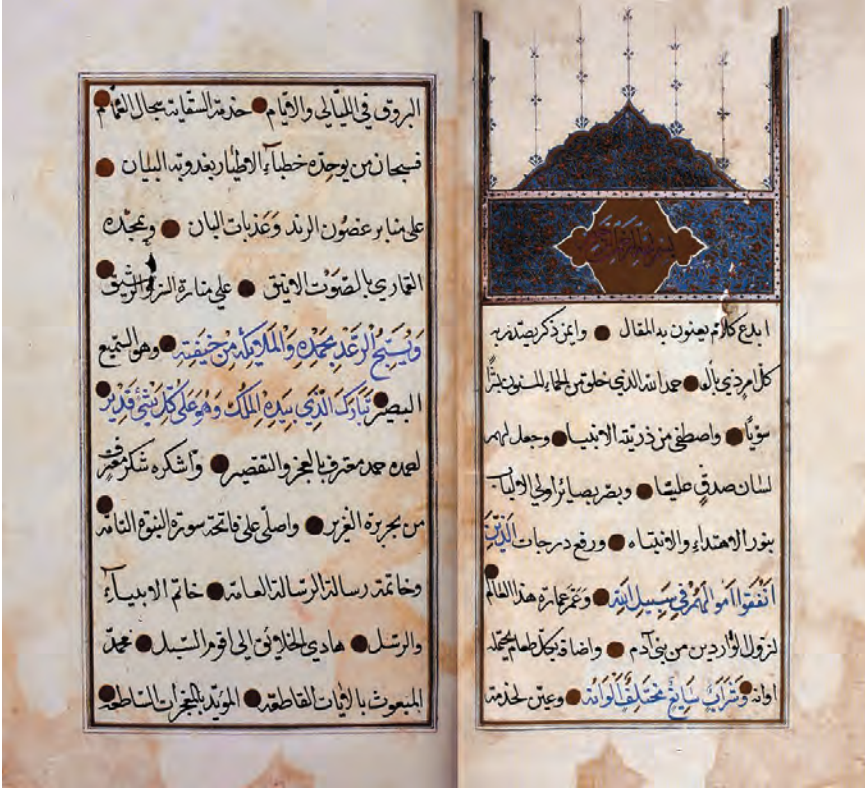 ابدع كلام يعنون به المقال وايمن ذكر يصدر به
كل امر ذي بال حمد الله الذي خلق من الماء المسنون بشرًا
سويًا واصطفى من ذريته الانبياء وجعل لهم
لسان صدق عليا وبصر بصائر اولي الالباب
بنور الاهتداء والانتباه ورفع درجات الَّذِين
انفقوا اموالهم في سبيل الله وعمر عمارة هذا العالم
لنزول الواردين من بني آدم واضافه بكل طعام يحمله
اوانه وشراب سايغ مختلف الوانه وعين لخدمة
البروق في الليالي والايام خدمة السقاية بجمال الغمام
فسبحان من يوحده خطباء الاطيار بعذوبة البيان
على منابر غصون الرند وعذبات البان ويمجده
القماري بالصوت الانيق على منارة السرو الرشيق
ويسبح الرعد بحمده والملائكة من خيفته وهو السميع
البصير تبارك الذي بيده الملك وهو على كل شيء قدير
نحمده حمد معترف بالعجز والتقصير واشكره شكر مغترف
من بحر بره الغزير واصلي على فاتحة سورة النبوة التامة
وخاتمة رسالة الرسالة العامة خاتم الانبياء
والرسل هادي الخلائق الى اقوم السبل محمد
المبعوث بالايات القاطعة المؤيد بالمعجزات الساطعة